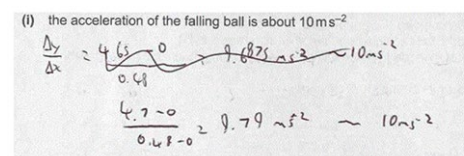 (i) the acceleration of the falling ball is about 10 m s⁻²
Δy/Δx = 4.65-0/0.48 = 9.6875 ms⁻² ~10ms⁻²
4.7-0/0.48-0 = 9.79 ms⁻² ~ 10ms⁻²